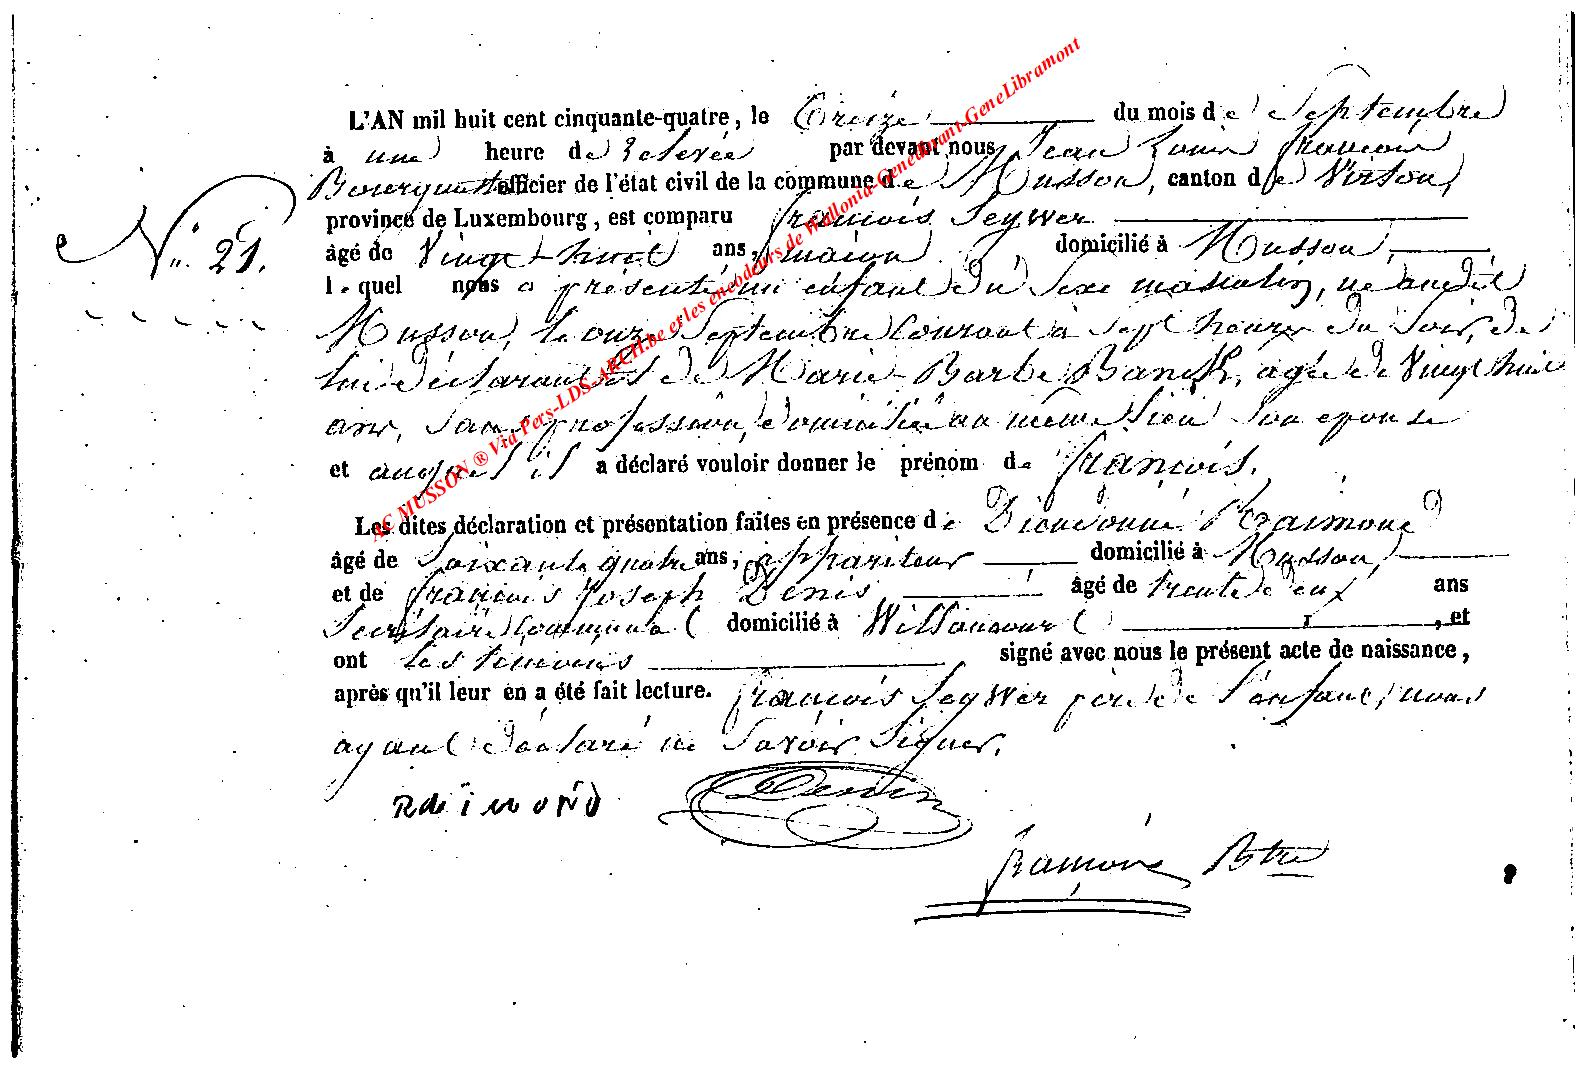 L'AN mil huit cent cinquante-quatre, le treize du mois de Septembre
à une heure de relevée par devant nous Jean Louis François
Bourguet officier de l'état civil de la commune de Musson, canton de Virton,
province de Luxembourg, est comparu François Seywer
N° 21.
âgé de Vingt-huit ans, maçon, domicilié à Musson,
lequel nous a présenté un enfant du sexe masculin, né audit
Musson, le onze Septembre Courant à sept heures du soir, de
lui déclarant et de Marie Barbe, agée de Vingt huit
ans, sans profession, domiciliée au même lieu son epouse
et auquel il a déclaré vouloir donner le prénom de François.
Les dites déclaration et présentation faites en présence de Dieudonné Raimond
âgé de Soixante quatre ans, appariteur domicilié à Musson,
et de François Joseph Denis âgé de trente deux ans
Secrétaire Communal domicilié à Willancourt, et
ont les témoins signé avec nous le présent acte de naissance,
après qu'il leur en a été fait lecture. François Seywer père de l'enfant, nous
ayant déclaré ne Savoir Signer.
RAiMOND Denis
François Btre
AC MUSSON ® Via Pers-LDS-ARCH.be et les encodeurs de Wallonia-Genebrant-GeneLibramont